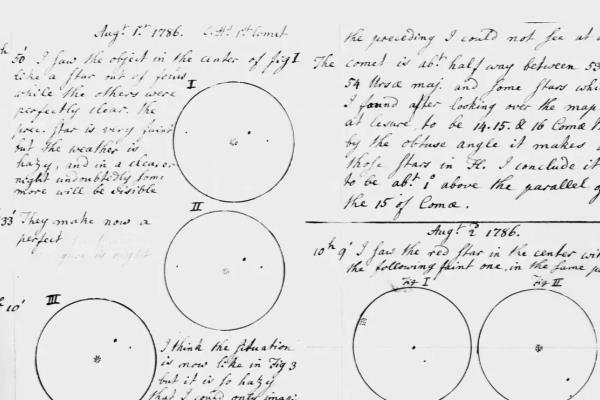 Augt 1st 1786. C.H's 1st Comet
h 50' I saw the object in the center of fig I
like a star out of focus
while the others were
perfectly clear. the
prec. star is very faint
but the weather is
hazy, and in a clearer
night undoubtedly some
more will be visible
I
II
33' They make now a
perfect
h 10'
III
I think the situation
is now like in Fig 3
but it is so hazy
that I could only imagi
the preceding I could not see at
The comet is abt half way between 53
54 Ursæ maj. and some stars whi
I found after looking over the map
at leisure, to be 14. 15. & 16 Comæ
by the obtuse angle it makes
those stars in I conclude it
to be abt 1° above the parallel
the 15 of Comæ.
Augt 2 1786.
10h 9' I saw the red star in the center wit
the following faint one, in the same p
Fig I
Fig II